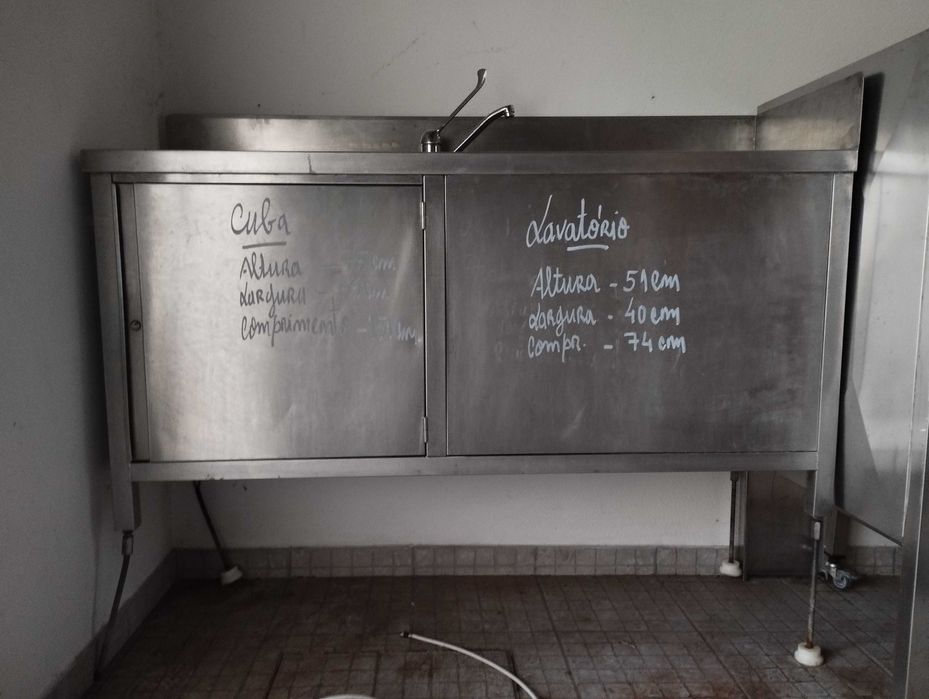 Cuba
Altura -
Largura -
Comprimento - cm
Lavatório
Altura - 51 cm
Largura - 40 cm
Compr. - 74 cm